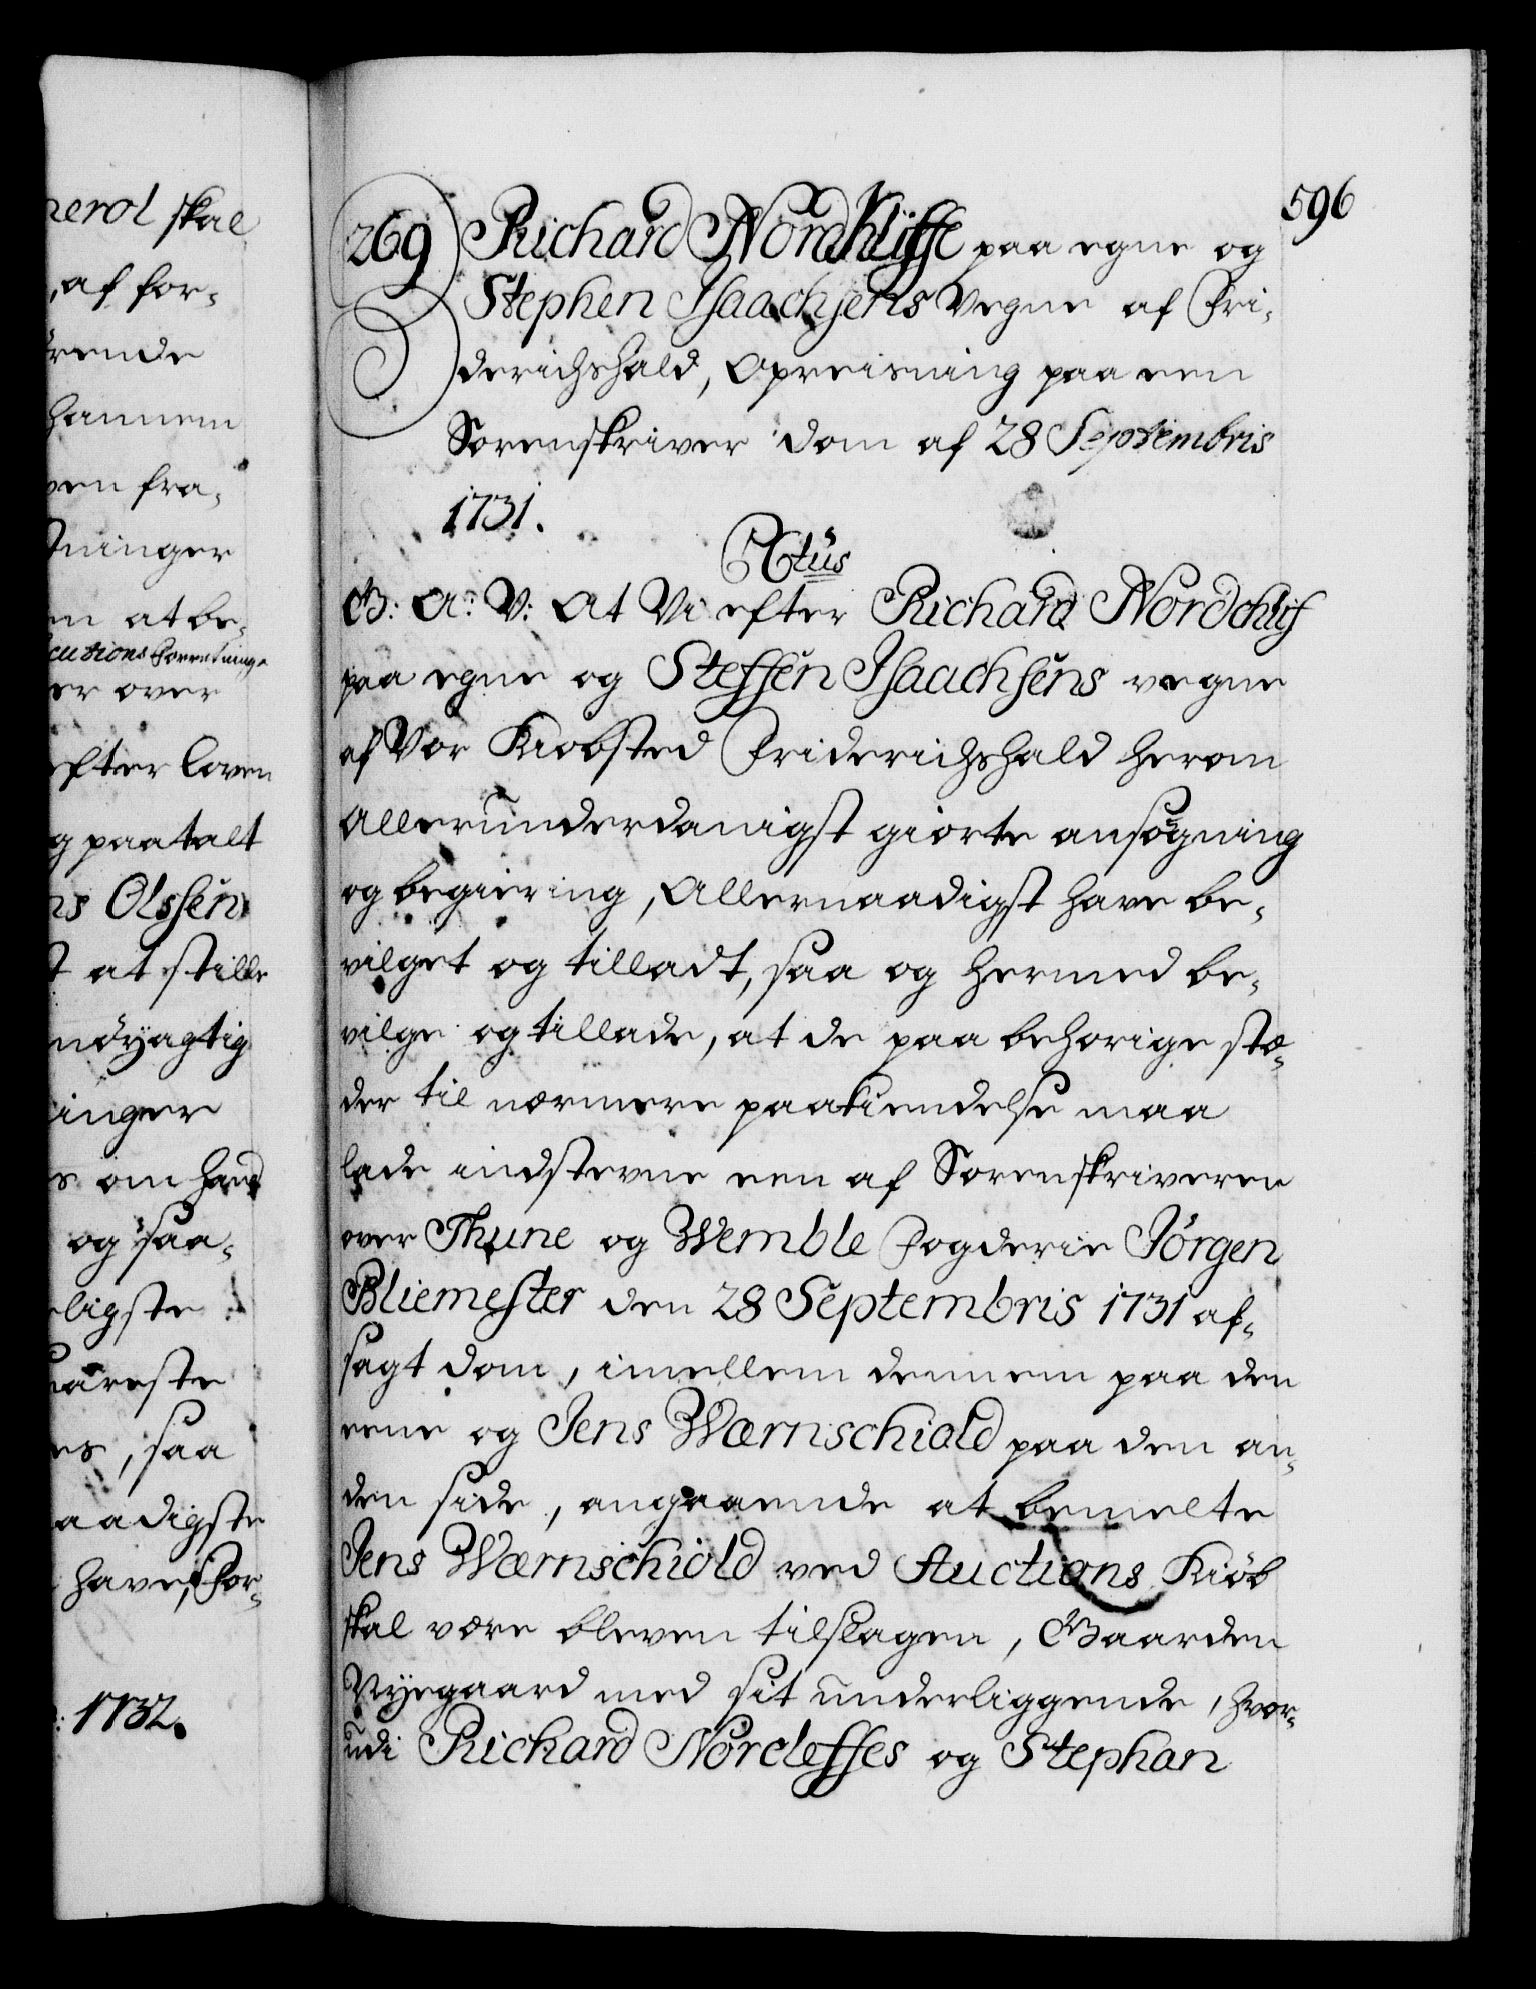 nerol skal
, af for-
rende
hannem
ven fra-
tninger
em at be-
cutions Forretning-
er over
efter loven
g paatalt
ns Olssen
t at stille
nöyagtig
inger
s om hand
og saa-
ligste
es, saa
aadigste
have, for-
: 1732.
596
269 Richard Nordkliffe paa egne og
Stephen Isaachsens vegne af Fri-
derichshald, Opreisning paa een
Sorenskriver dom af 28 Septembris
1731.
G: A: V: At Vi efter Richard Nordchlif
paa egne og Steffen Isaachsens vegne
af Vor Kiobsted Friderichshald herom
Allerunderdanigst giorte ansøgning
og begiering, Allernaadigst have be-
vilget og tilladt, saa og hermed be-
vilge og tillade, at de paa behorige stæ-
der til nærmere paakiendelse maa
lade indstevne een af Sorenskriveren
over Thune og Wemble Fogderie Jörgen
Bliemester den 28 Septembris 1731 af-
sagt dom, imellem dennem paa den
eene og Jens Wærnschiold paa den an-
den side, angaaende at bemelte
Jens Wærnschiold ved Auctions Kiöb
skal være bleven tilslagen, Gaarden
Nyegaard med sit underliggende, hvor-
udi Richard Norcleffes og Stephan